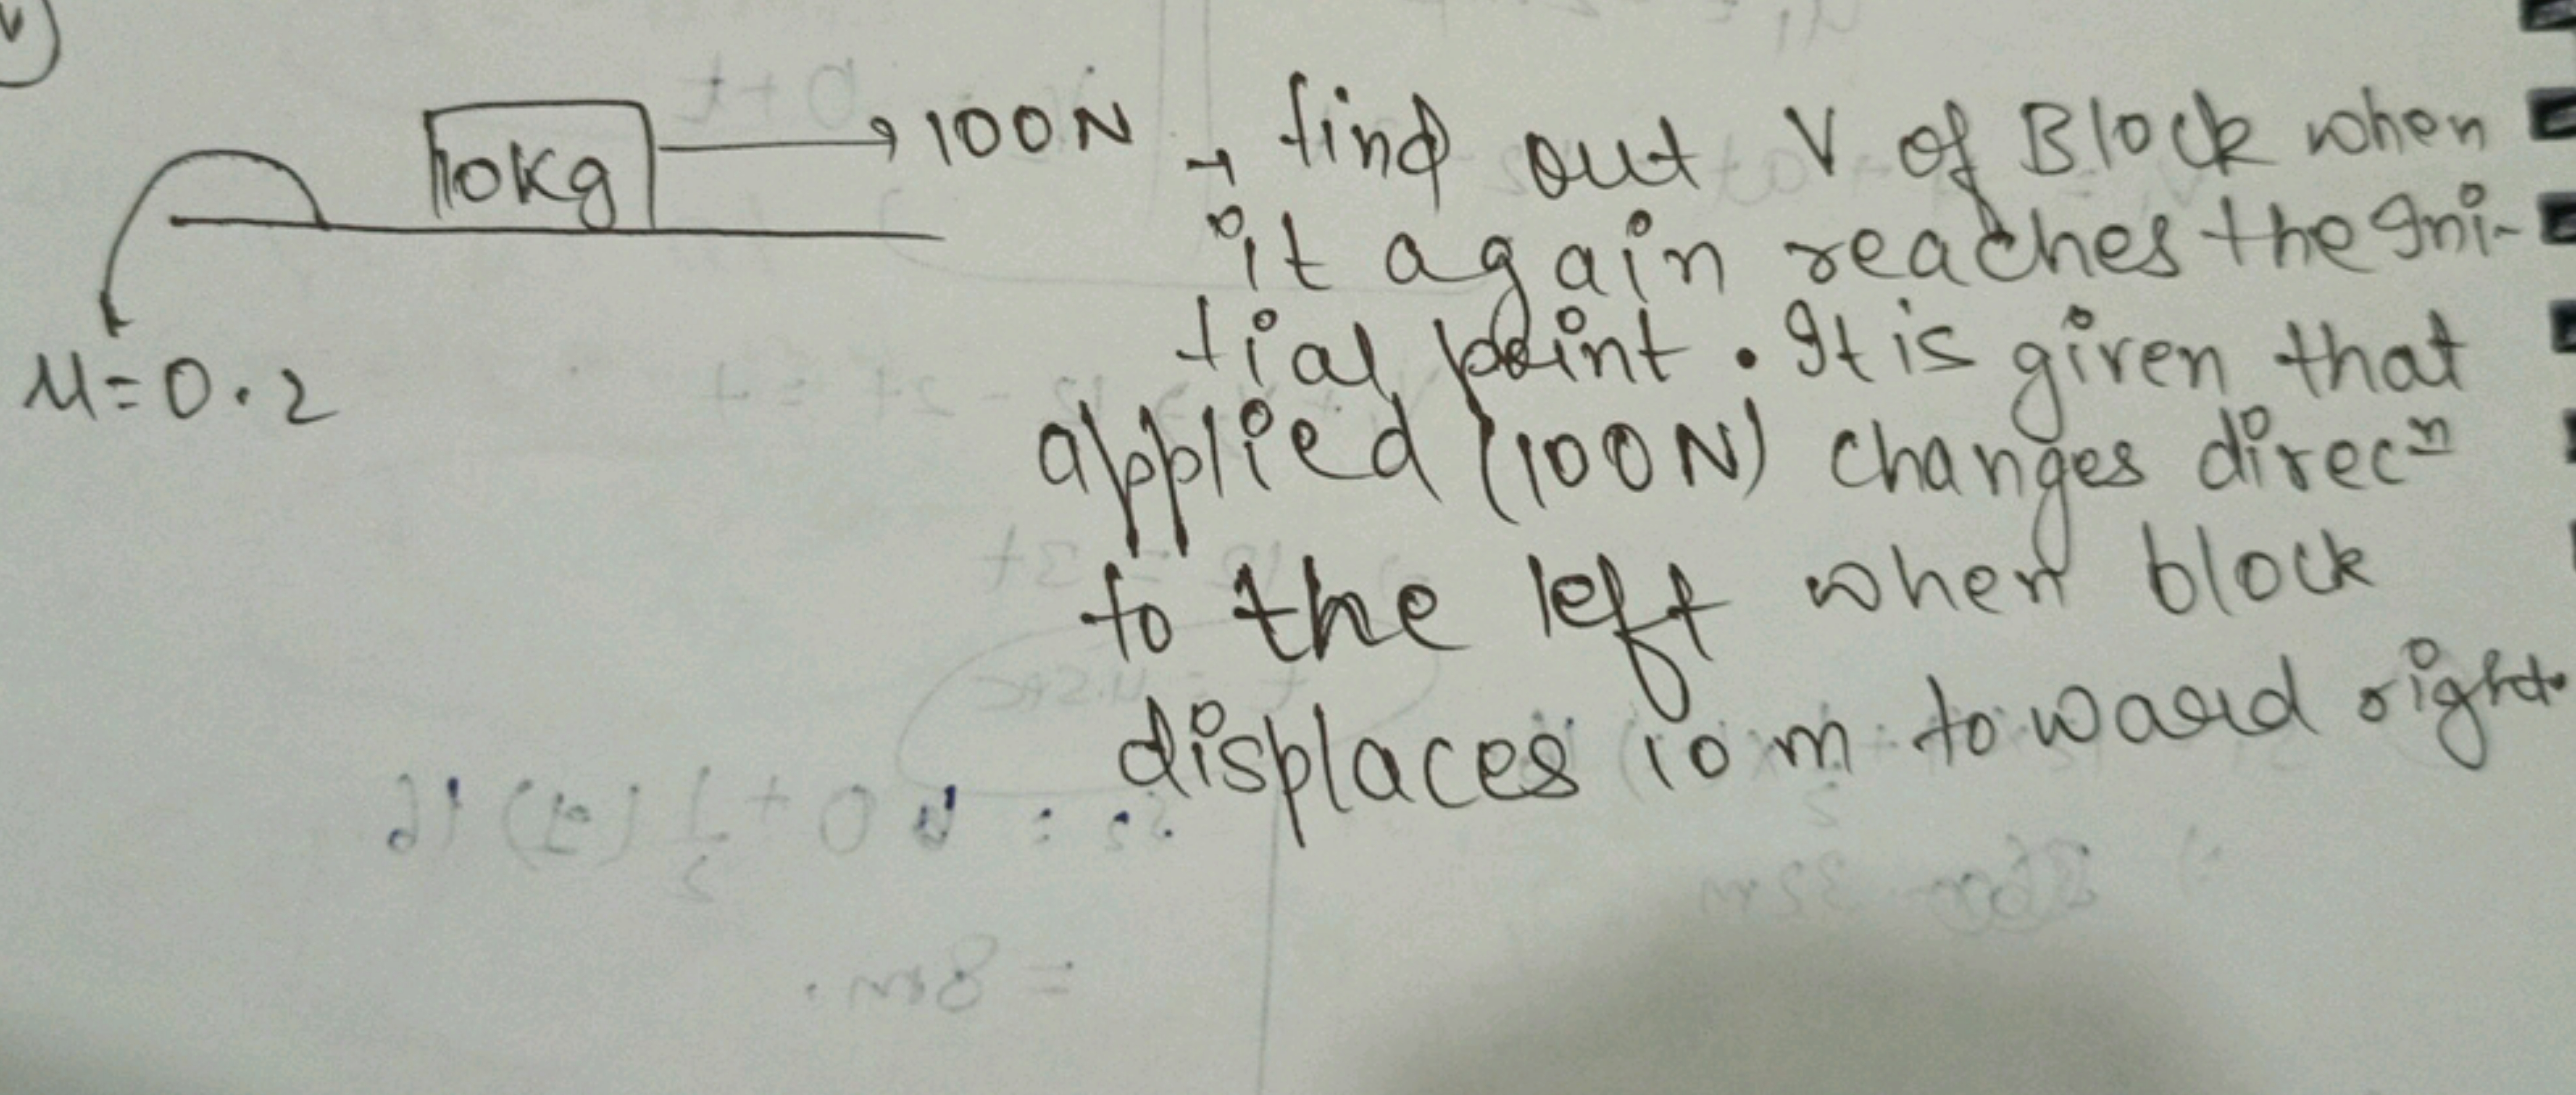 10Kg
100N
μ=0.2
→ find out V of Block when
it again reaches the Ini-
tial point. It is given that
applied (100N) changes direcⁿ
to the left when block
displaces 10 m toward right.